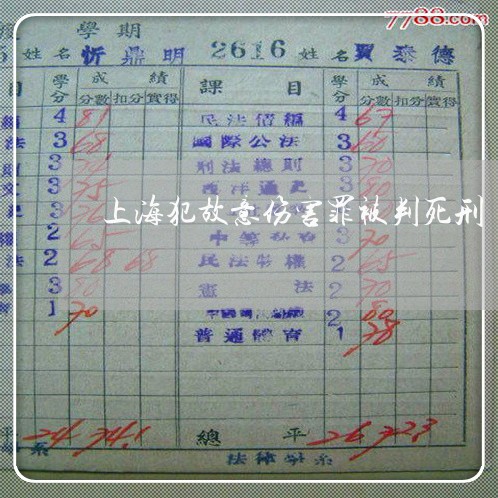 7788.com
學期
姓名 忻鼎明 2616 姓名 賈泰德
目 學分 成績 課目 學分 成績
分數 扣分 實得 分數 扣分 實得
4 81 民法債編 4 67
法 3 68 國際公法 3 60
3 刑法總則 3 70
3 75 西洋通史 3 80
3
2 65 3 70
法 2 68 68 民法物權 2 65
3 80 憲法 2 70
1 70 2 80
普通體育 1 78
24 74.1 總平 26 72.3
系 法律學系
上海犯故意伤害罪被判死刑